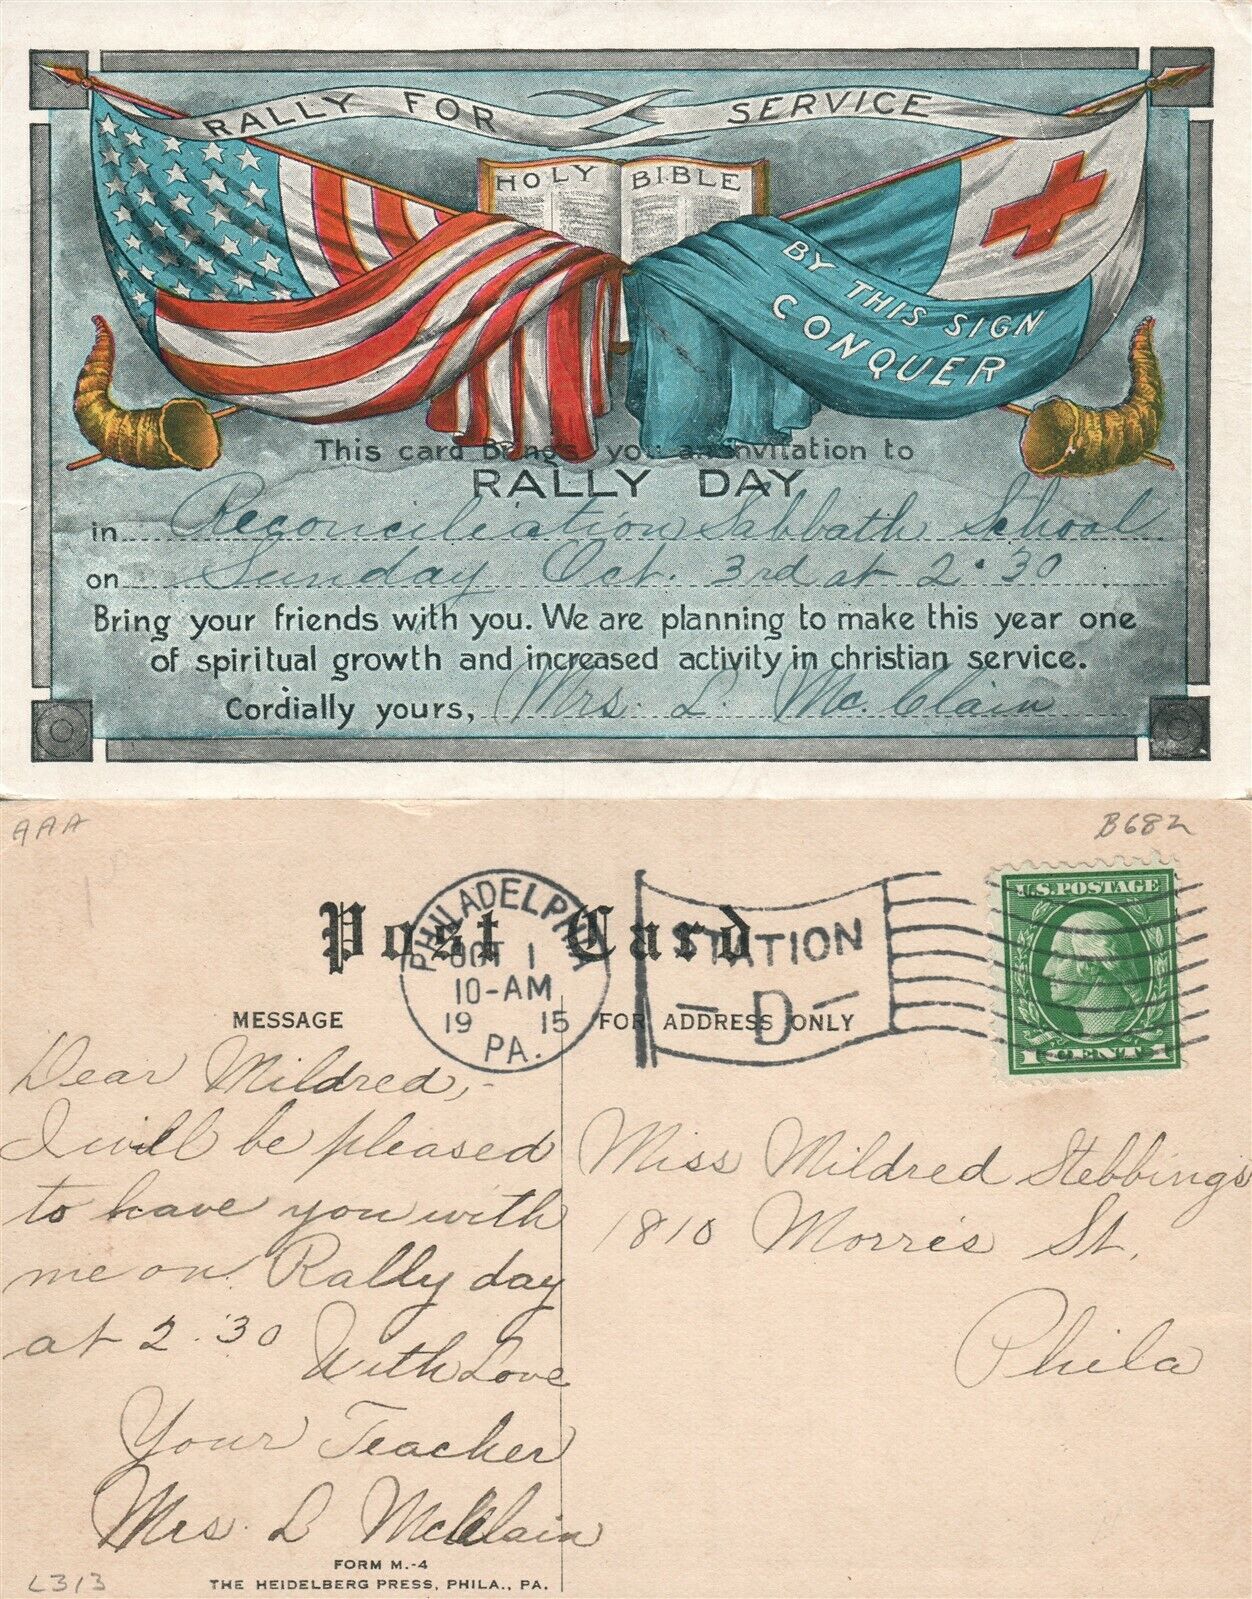 RALLY FOR SERVICE
HOLY BIBLE
BY THIS SIGN
CONQUER
This card Brings you an invitation to
RALLY DAY
in Reconciliation Sabbath School
on Sunday Oct. 3rd at 2.30
Bring your friends with you. We are planning to make this year one
of spiritual growth and increased activity in christian service.
Cordially yours, Mrs. L. Mc.Clain
AAA
B682
Post Card
PHILADELPHIA
OCT 1
10-AM
19 15
PA.
STATION
-D-
U.S. POSTAGE
1 CENT 1
MESSAGE
FOR ADDRESS ONLY
Dear Mildred,-
I will be pleased
to have you with
me on Rally day
at 2.30
With Love
Your Teacher
Mrs. L McClain
Miss Mildred Stebbings
1810 Morris St.
Phila
FORM M.-4
THE HEIDELBERG PRESS, PHILA., PA.
L313